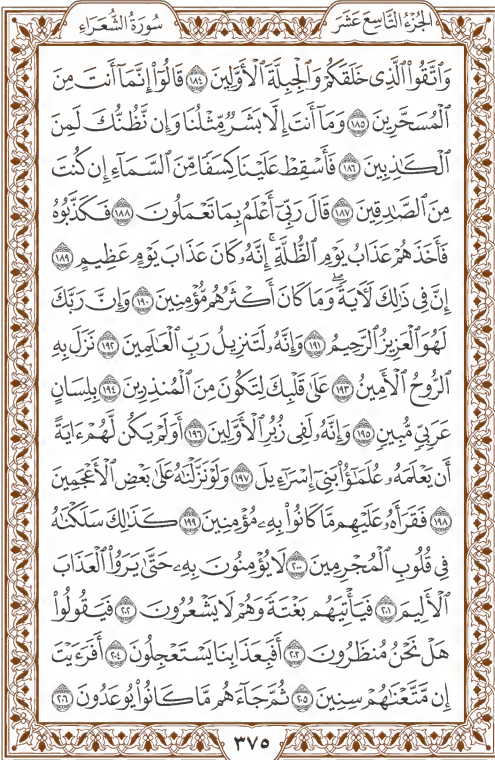 الجزء التاسع عشر
سورة الشعراء
وَٱتَّقُواْ ٱلَّذِى خَلَقَكُمْ وَٱلْجِبِلَّةَ ٱلْأَوَّلِينَ ١٨٤ قَالُوٓاْ إِنَّمَآ أَنتَ مِنَ
ٱلْمُسَحَّرِينَ ١٨٥ وَمَآ أَنتَ إِلَّا بَشَرٌ مِّثْلُنَا وَإِن نَّظُنُّكَ لَمِنَ
ٱلْكَٰذِبِينَ ١٨٦ فَأَسْقِطْ عَلَيْنَا كِسَفًا مِّنَ ٱلسَّمَآءِ إِن كُنتَ
مِنَ ٱلصَّٰدِقِينَ ١٨٧ قَالَ رَبِّىٓ أَعْلَمُ بِمَا تَعْمَلُونَ ١٨٨ فَكَذَّبُوهُ
فَأَخَذَهُمْ عَذَابُ يَوْمِ ٱلظُّلَّةِ ۚ إِنَّهُۥ كَانَ عَذَابَ يَوْمٍ عَظِيمٍ ١٨٩
إِنَّ فِى ذَٰلِكَ لَأٓيَةً ۖ وَمَا كَانَ أَكْثَرُهُم مُّؤْمِنِينَ ١٩٠ وَإِنَّ رَبَّكَ
لَهُوَ ٱلْعَزِيزُ ٱلرَّحِيمُ ١٩١ وَإِنَّهُۥ لَتَنزِيلُ رَبِّ ٱلْعَٰلَمِينَ ١٩٢ نَزَلَ بِهِ
ٱلرُّوحُ ٱلْأَمِينُ ١٩٣ عَلَىٰ قَلْبِكَ لِتَكُونَ مِنَ ٱلْمُنذِرِينَ ١٩٤ بِلِسَانٍ
عَرَبِىٍّ مُّبِينٍ ١٩٥ وَإِنَّهُۥ لَفِى زُبُرِ ٱلْأَوَّلِينَ ١٩٦ أَوَلَمْ يَكُن لَّهُمْ ءَايَةً
أَن يَعْلَمَهُۥ عُلَمَٰٓؤُاْ بَنِىٓ إِسْرَٰٓءِيلَ ١٩٧ وَلَوْ نَزَّلْنَٰهُ عَلَىٰ بَعْضِ ٱلْأَعْجَمِينَ
١٩٨ فَقَرَأَهُۥ عَلَيْهِم مَّا كَانُواْ بِهِۦ مُؤْمِنِينَ ١٩٩ كَذَٰلِكَ سَلَكْنَٰهُ
فِى قُلُوبِ ٱلْمُجْرِمِينَ ٢٠٠ لَا يُؤْمِنُونَ بِهِۦ حَتَّىٰ يَرَوُاْ ٱلْعَذَابَ
ٱلْأَلِيمَ ٢٠١ فَيَأْتِيَهُم بَغْتَةً وَهُمْ لَا يَشْعُرُونَ ٢٠٢ فَيَقُولُواْ
هَلْ نَحْنُ مُنظَرُونَ ٢٠٣ أَفَبِعَذَابِنَا يَسْتَعْجِلُونَ ٢٠٤ أَفَرَءَيْتَ
إِن مَّتَّعْنَٰهُمْ سِنِينَ ٢٠٥ ثُمَّ جَآءَهُم مَّا كَانُواْ يُوعَدُونَ ٢٠٦
٣٧٥